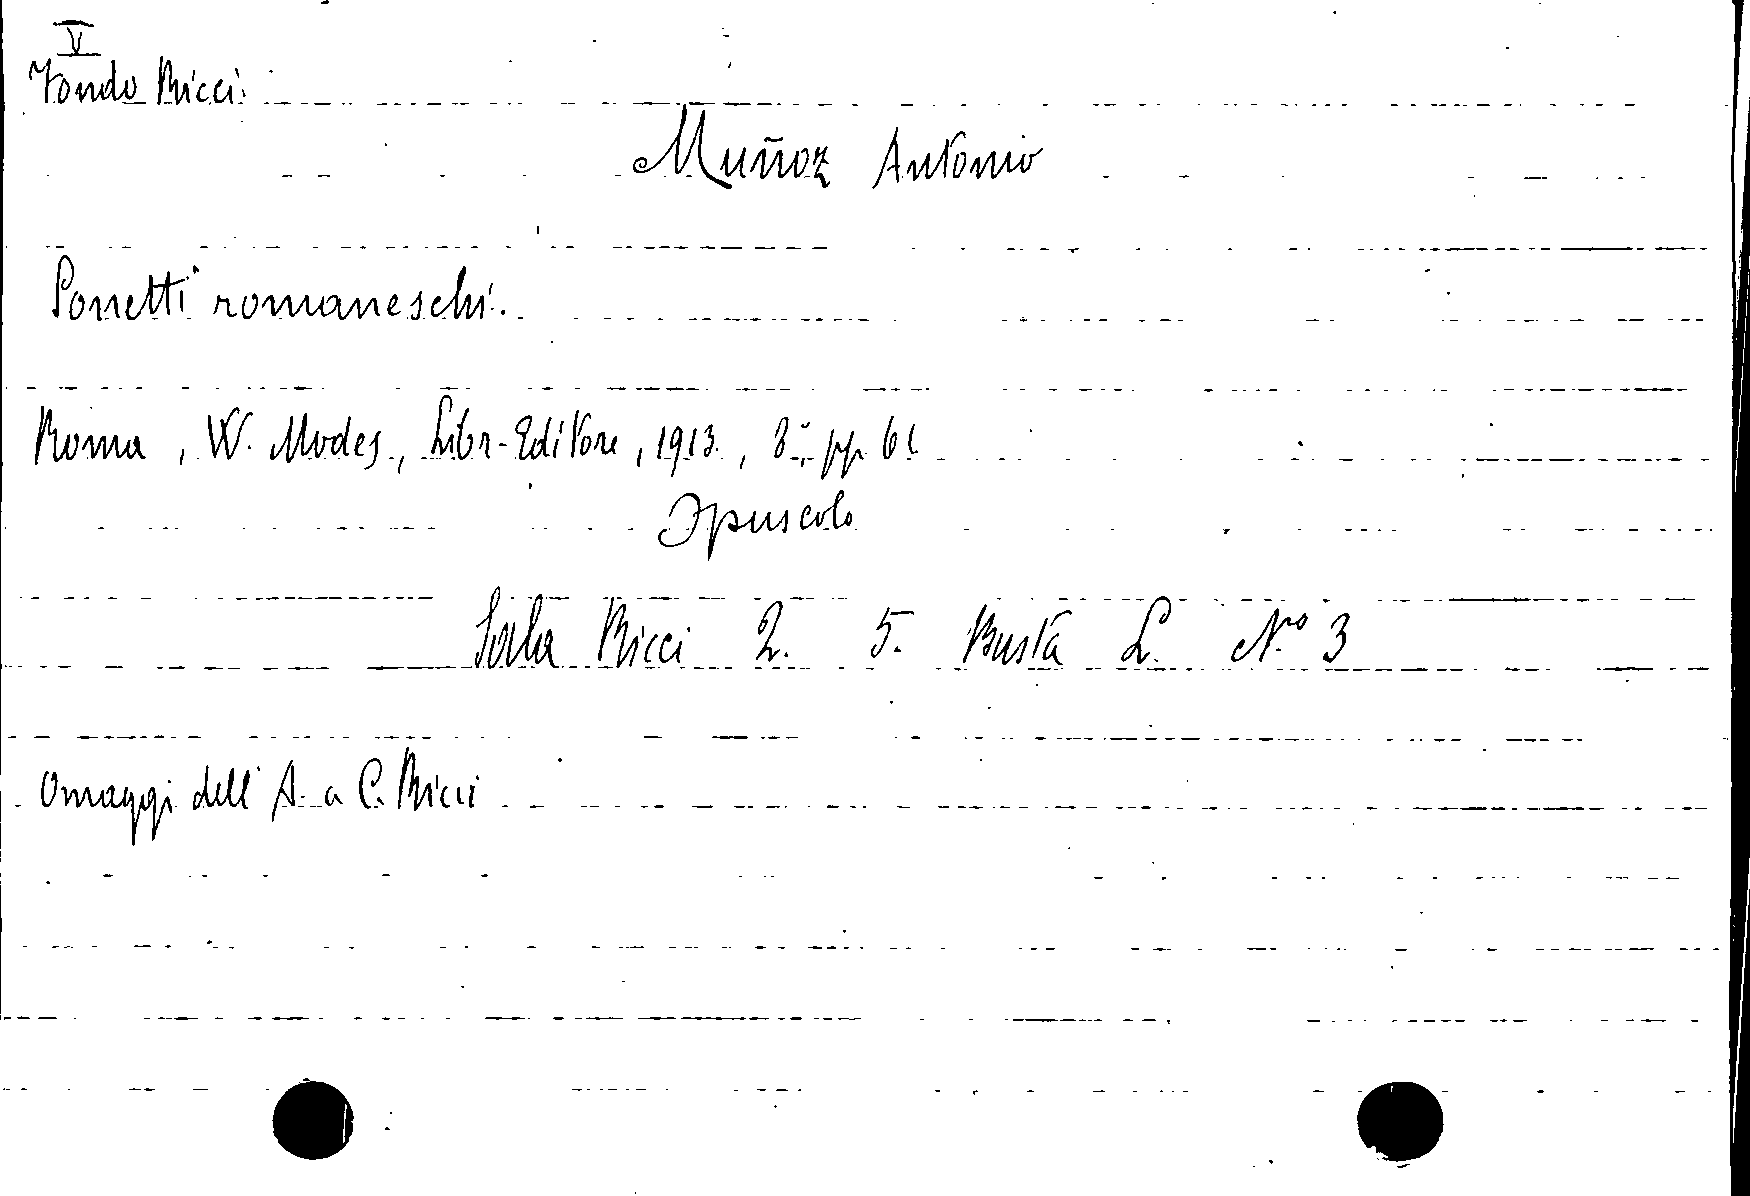 V
Fondo Ricci.
Muñoz Antonio
Sonetti romaneschi.
Roma, W. Modes, Libr-Editore, 1913., 8°, pp 61
Opuscolo
Sala Ricci 2. 5. Busta L. N.° 3
Omaggi dell' A. a C. Ricci